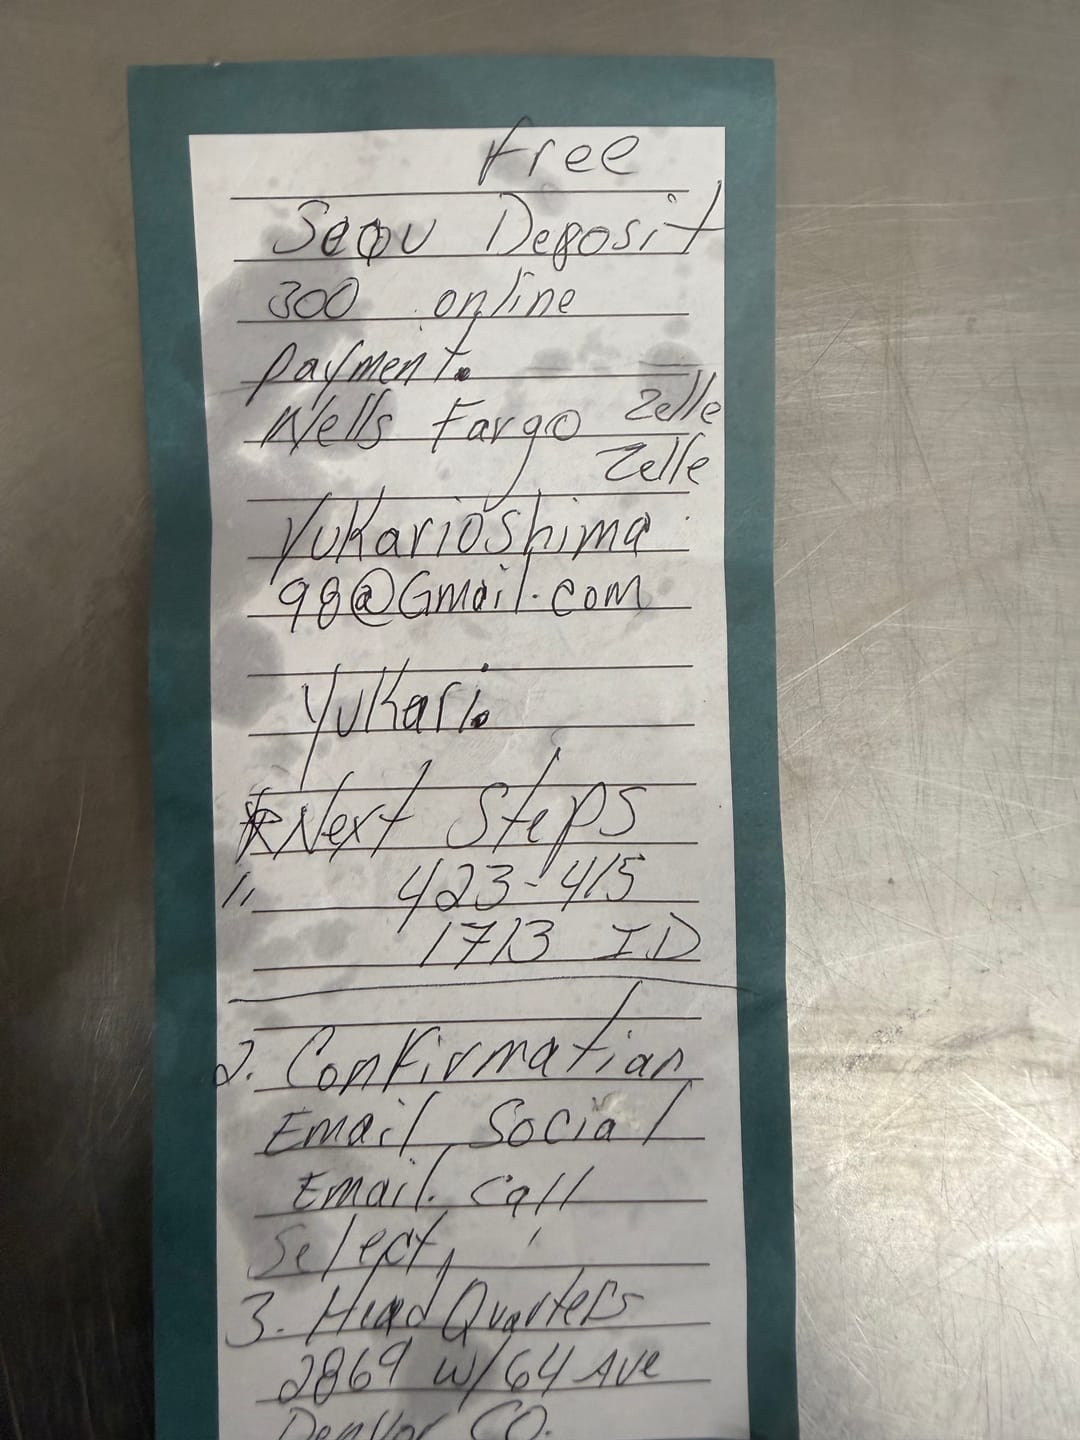 Free
Secu Deposit
300 online
payment.
Wells Fargo Zelle
Zelle
Yukarioshima
98@Gmail.com
Yukari.
*Next Steps
1. 423-415
1713 ID
2. Confirmation
Email Social
Email. Call
Select,
3. Head Quarters
2869 W/64 Ave
Denvor CO.